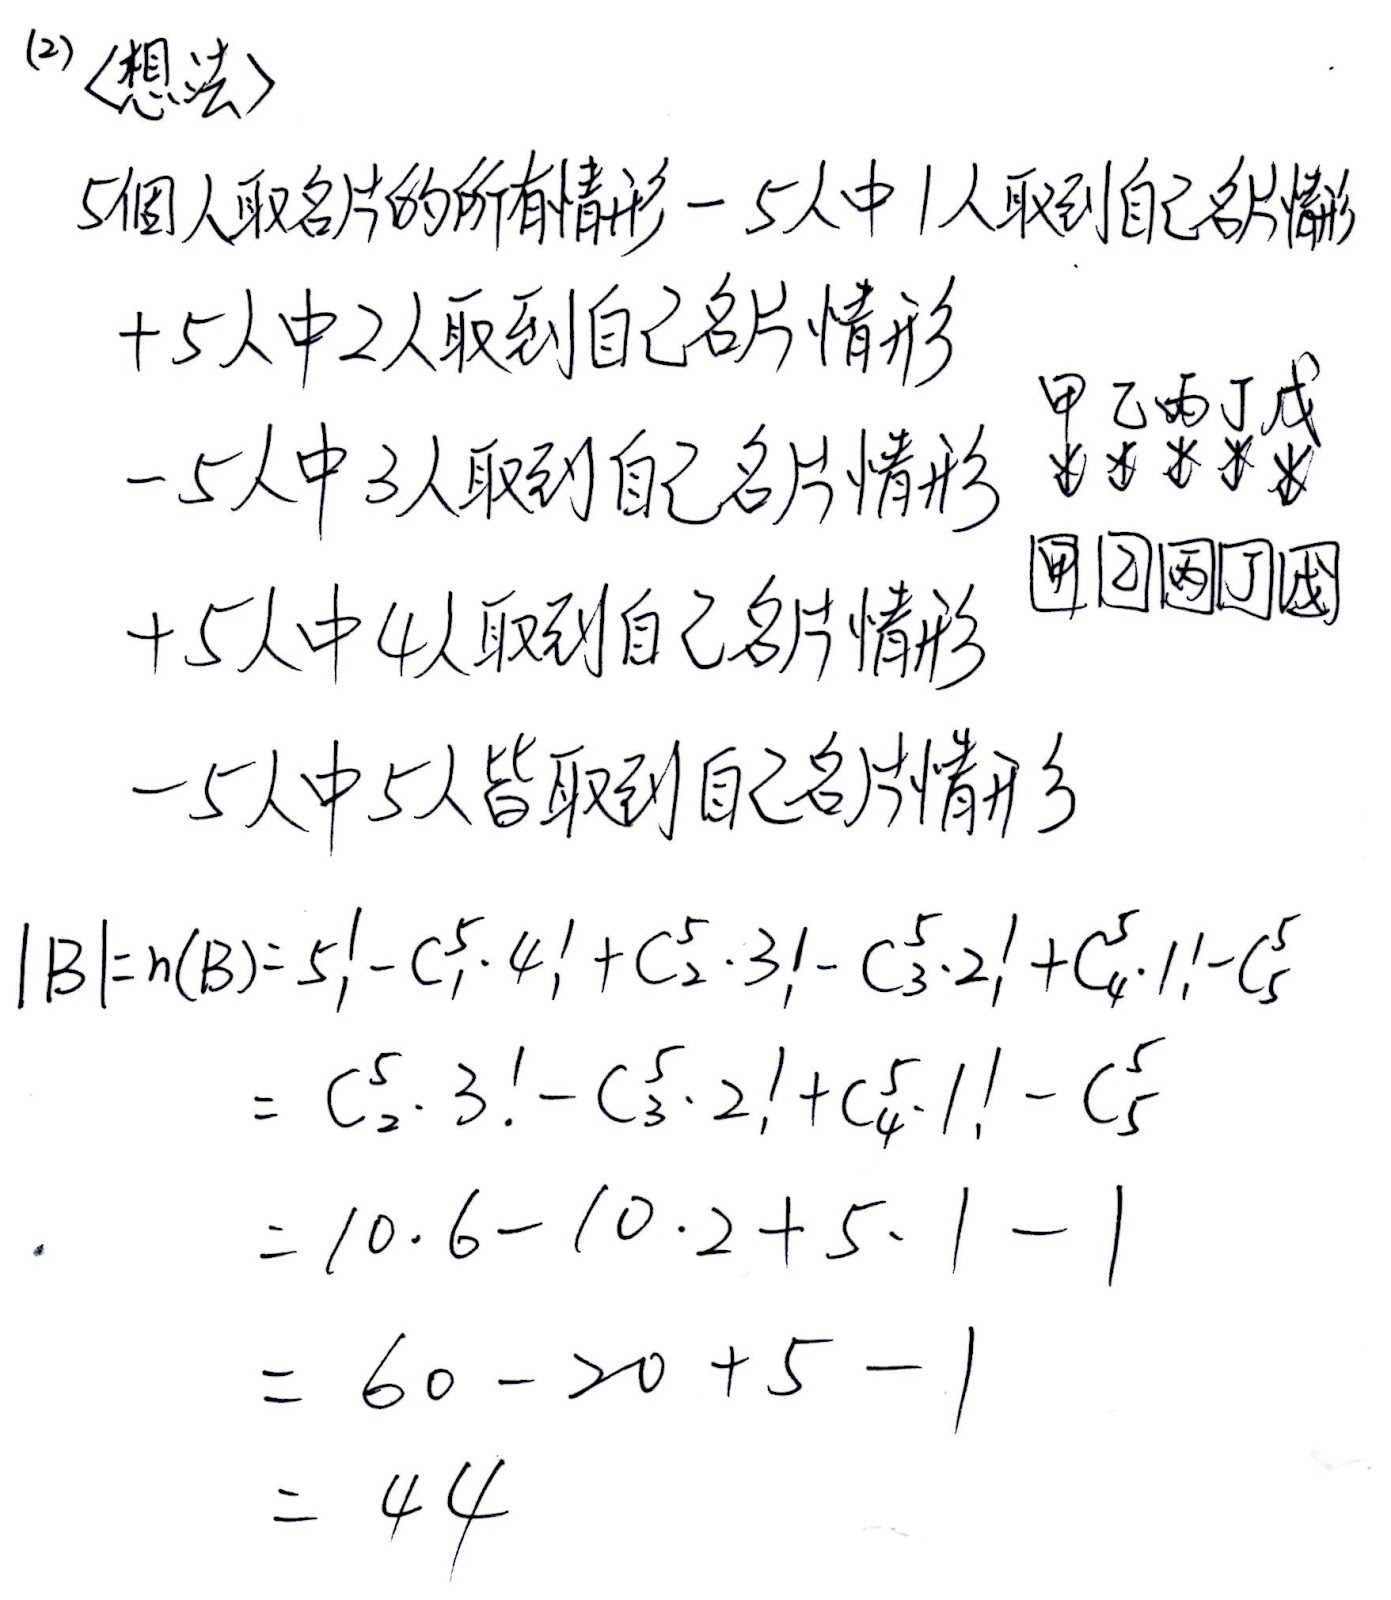 (2) <想法>
5個人取名片的所有情形 - 5人中1人取到自己名片情形
+5人中2人取到自己名片情形
甲乙丙丁戊
-5人中3人取到自己名片情形
甲 乙 丙 丁 戊
+5人中4人取到自己名片情形
-5人中5人皆取到自己名片情形
|B|=n(B)=5!-C⁵₁·4!+C⁵₂·3!-C⁵₃·2!+C⁵₄·1!-C⁵₅
= C⁵₂·3!-C⁵₃·2!+C⁵₄·1!-C⁵₅
=10·6-10·2+5·1-1
= 60-20+5-1
= 44